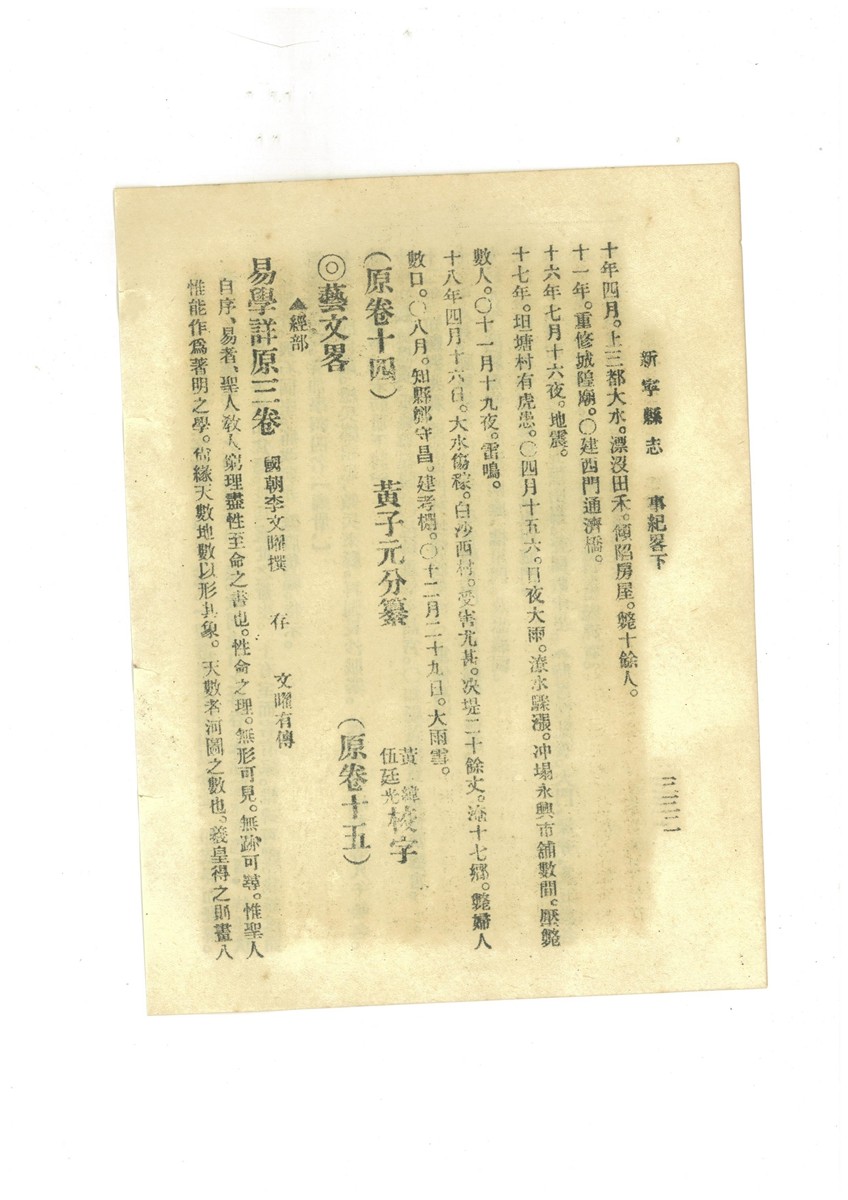 新寧縣志 事紀畧下 三三二
十年四月。上三都大水。漂沒田禾。傾陷房屋。斃十餘人。
十一年。重修城隍廟。〇建西門通濟橋。
十六年七月十六夜。地震。
十七年。坦塘村有虎患。〇四月十五六。日夜大雨。潦水驟漲。冲塌永興市舖數間。壓斃
數人。〇十一月十九夜。雷鳴。
十八年四月十六日。大水傷稼。白沙西村。受害尤甚。決堤二十餘丈。淹十七鄉。斃婦人
數口。〇八月。知縣鄭守昌。建考棚。〇十二月二十九日。大雨雪。
（原卷十四） 黃子元分纂 黃緯 伍廷光 校字
（原卷十五）
◎藝文畧
▲經部
易學詳原三卷 國朝李文曜撰 存 文曜有傳
自序、易者、聖人教人窮理盡性至命之書也。性命之理。無形可見。無跡可尋。惟聖人
惟能作爲著明之學。爲緣天數地數以形其象。天數者河圖之數也。羲皇得之則畫八